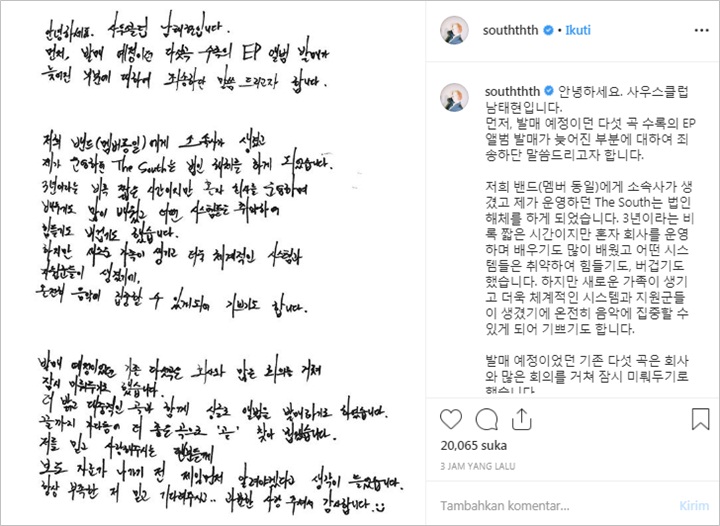 안녕하세요. 사우스클럽 남태현입니다.
먼저, 발매 예정이던 다섯곡 수록의 EP 앨범 발매가
늦어진 부분에 대하여 죄송하단 말씀 드리고자 합니다.
저희 밴드(멤버동일)에게 소속사가 생겼고
제가 운영하던 The South는 법인 해체를 하게 되었습니다.
3년이라는 비록 짧은 시간이지만 혼자 회사를 운영하며
배우기도 많이 배웠고 어떤 시스템들은 취약하여
힘들기도 버겁기도 했습니다.
하지만 새로운 가족이 생기고 더욱 체계적인 시스템과
지원군들이 생겼기에,
온전히 음악에 집중할 수 있게되어 기쁘기도 합니다.
발매 예정이었던 기존 다섯곡은 회사와 많은 회의를 거쳐
잠시 미뤄두기로 했습니다.
더 밝고 대중적인 곡과 함께 싱글로 앨범을 발매하기로 하였습니다.
더 좋은곡으로 '곧' 찾아 뵙겠습니다.
저를 믿고 사랑해주시는 팬분들께
보도 자료가 나가기 전 제일먼저 알려야겠다고 생각이 들었습니다.
항상 부족한 저 믿고 기다려주시고.. 과분한 사랑 주셔서 감사합니다. :)
southththth • Ikuti
southththth 안녕하세요. 사우스클럽
남태현입니다.
먼저, 발매 예정이던 다섯 곡 수록의 EP
앨범 발매가 늦어진 부분에 대하여 죄
송하단 말씀드리고자 합니다.
저희 밴드(멤버 동일)에게 소속사가 생
겼고 제가 운영하던 The South는 법인
해체를 하게 되었습니다. 3년이라는 비
록 짧은 시간이지만 혼자 회사를 운영하
며 배우기도 많이 배웠고 어떤 시스
템들은 취약하여 힘들기도, 버겁기도
했습니다. 하지만 새로운 가족이 생기
고 더욱 체계적인 시스템과 지원군들
이 생겼기에 온전히 음악에 집중할 수
있게 되어 기쁘기도 합니다.
발매 예정이었던 기존 다섯 곡은 회사
와 많은 회의를 거쳐 잠시 미뤄두기로
했습니다.
20,065 suka
3 JAM YANG LALU
Tambahkan komentar...
Kirim